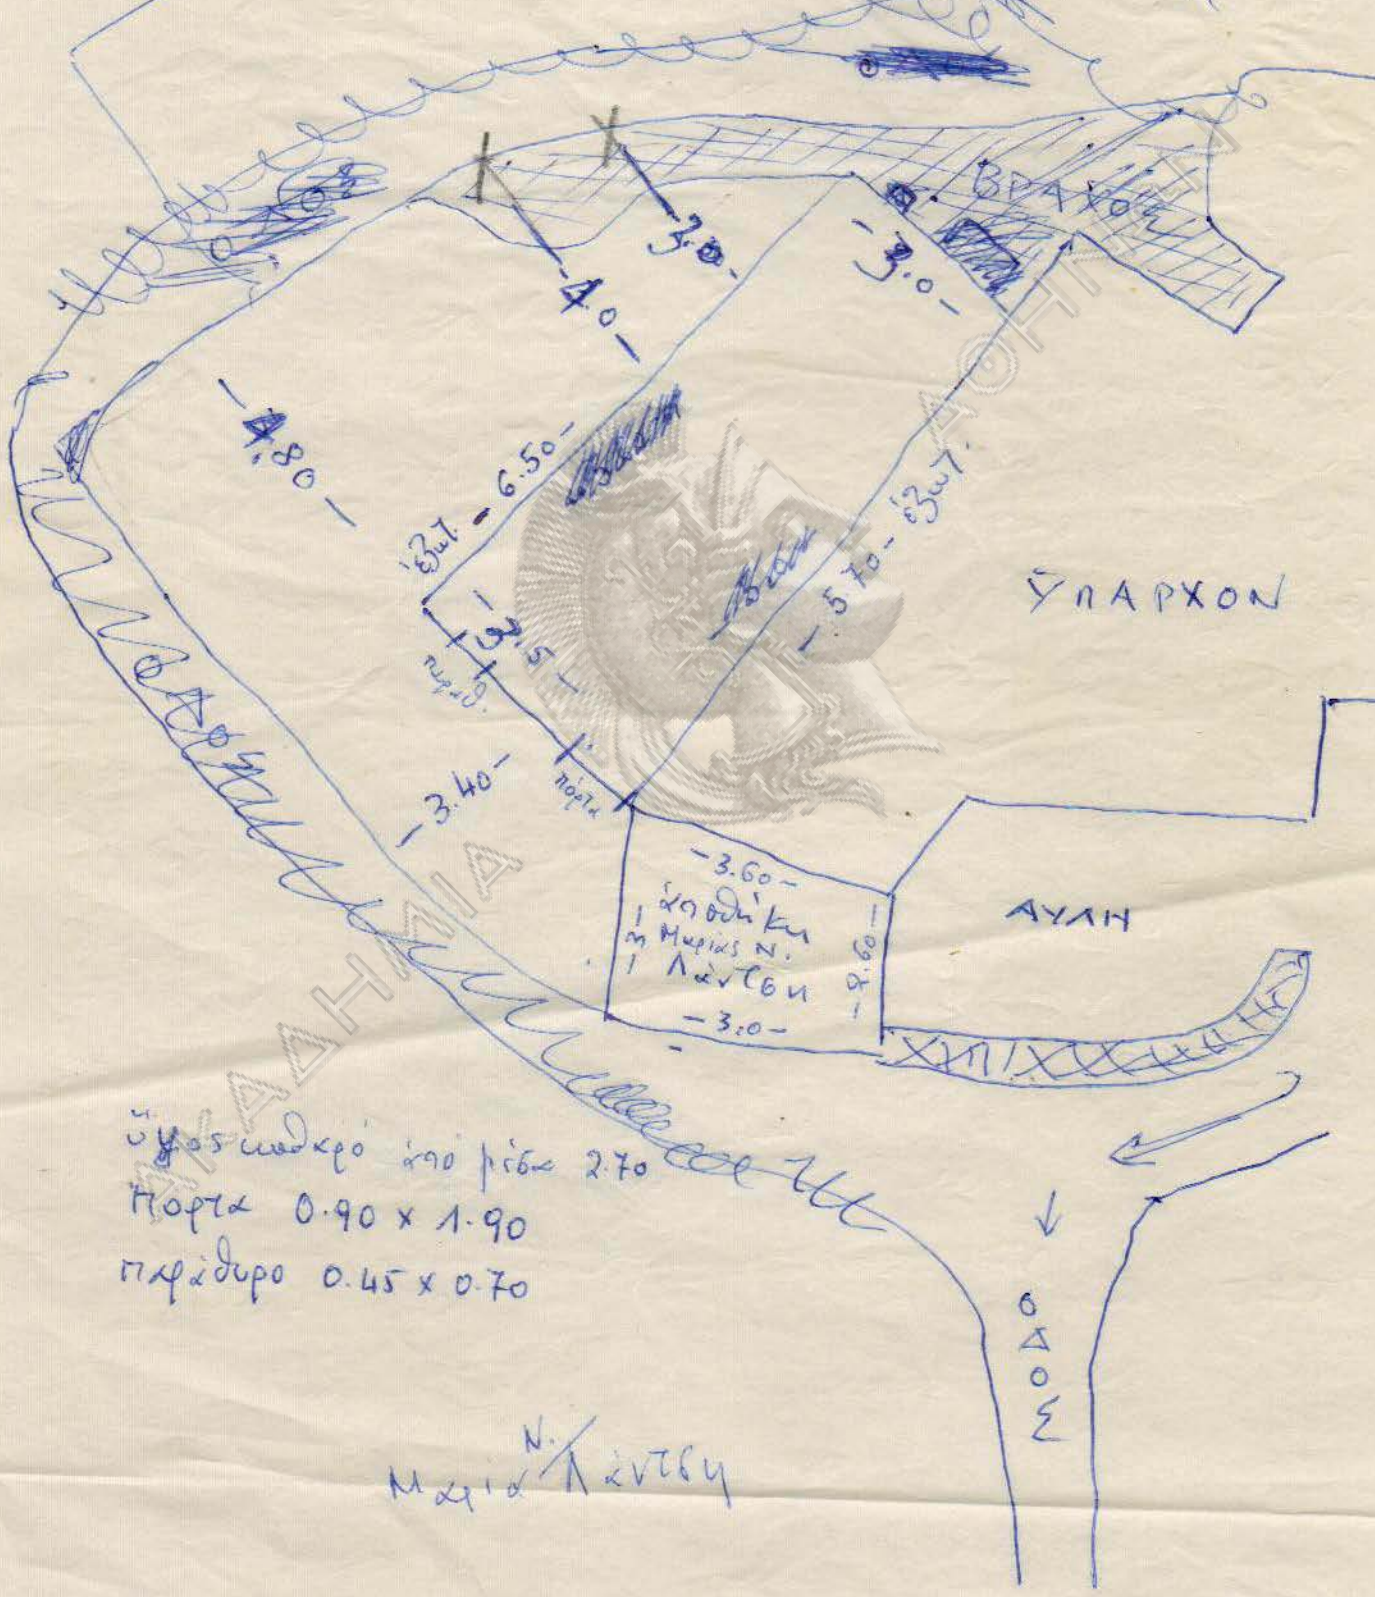 ΒΡΑΧΟΣ
-3.0-
-4.0-
-3.0-
-4.80-
ἐξωτ. - 6.50-
-5.70- ἐξωτ.
ὙΠΑΡΧΟΝ
-3.5-
παραθ.
πόρτα
-3.40-
-3.60-
ἀποθήκη
Μαρίας Ν.
Λάντση
-3-
-2.60-
-3.0-
ΑΥΛΗ
ὕψος καθαρό ἀπό μέσα 2.70
Πόρτα 0.90 x 1.90
Παράθυρο 0.45 x 0.70
ΟΔΟΣ
Μαρία Ν. Λάντση
ΑΚΑΔΗΜΙΑ ΑΘΗΝΩΝ